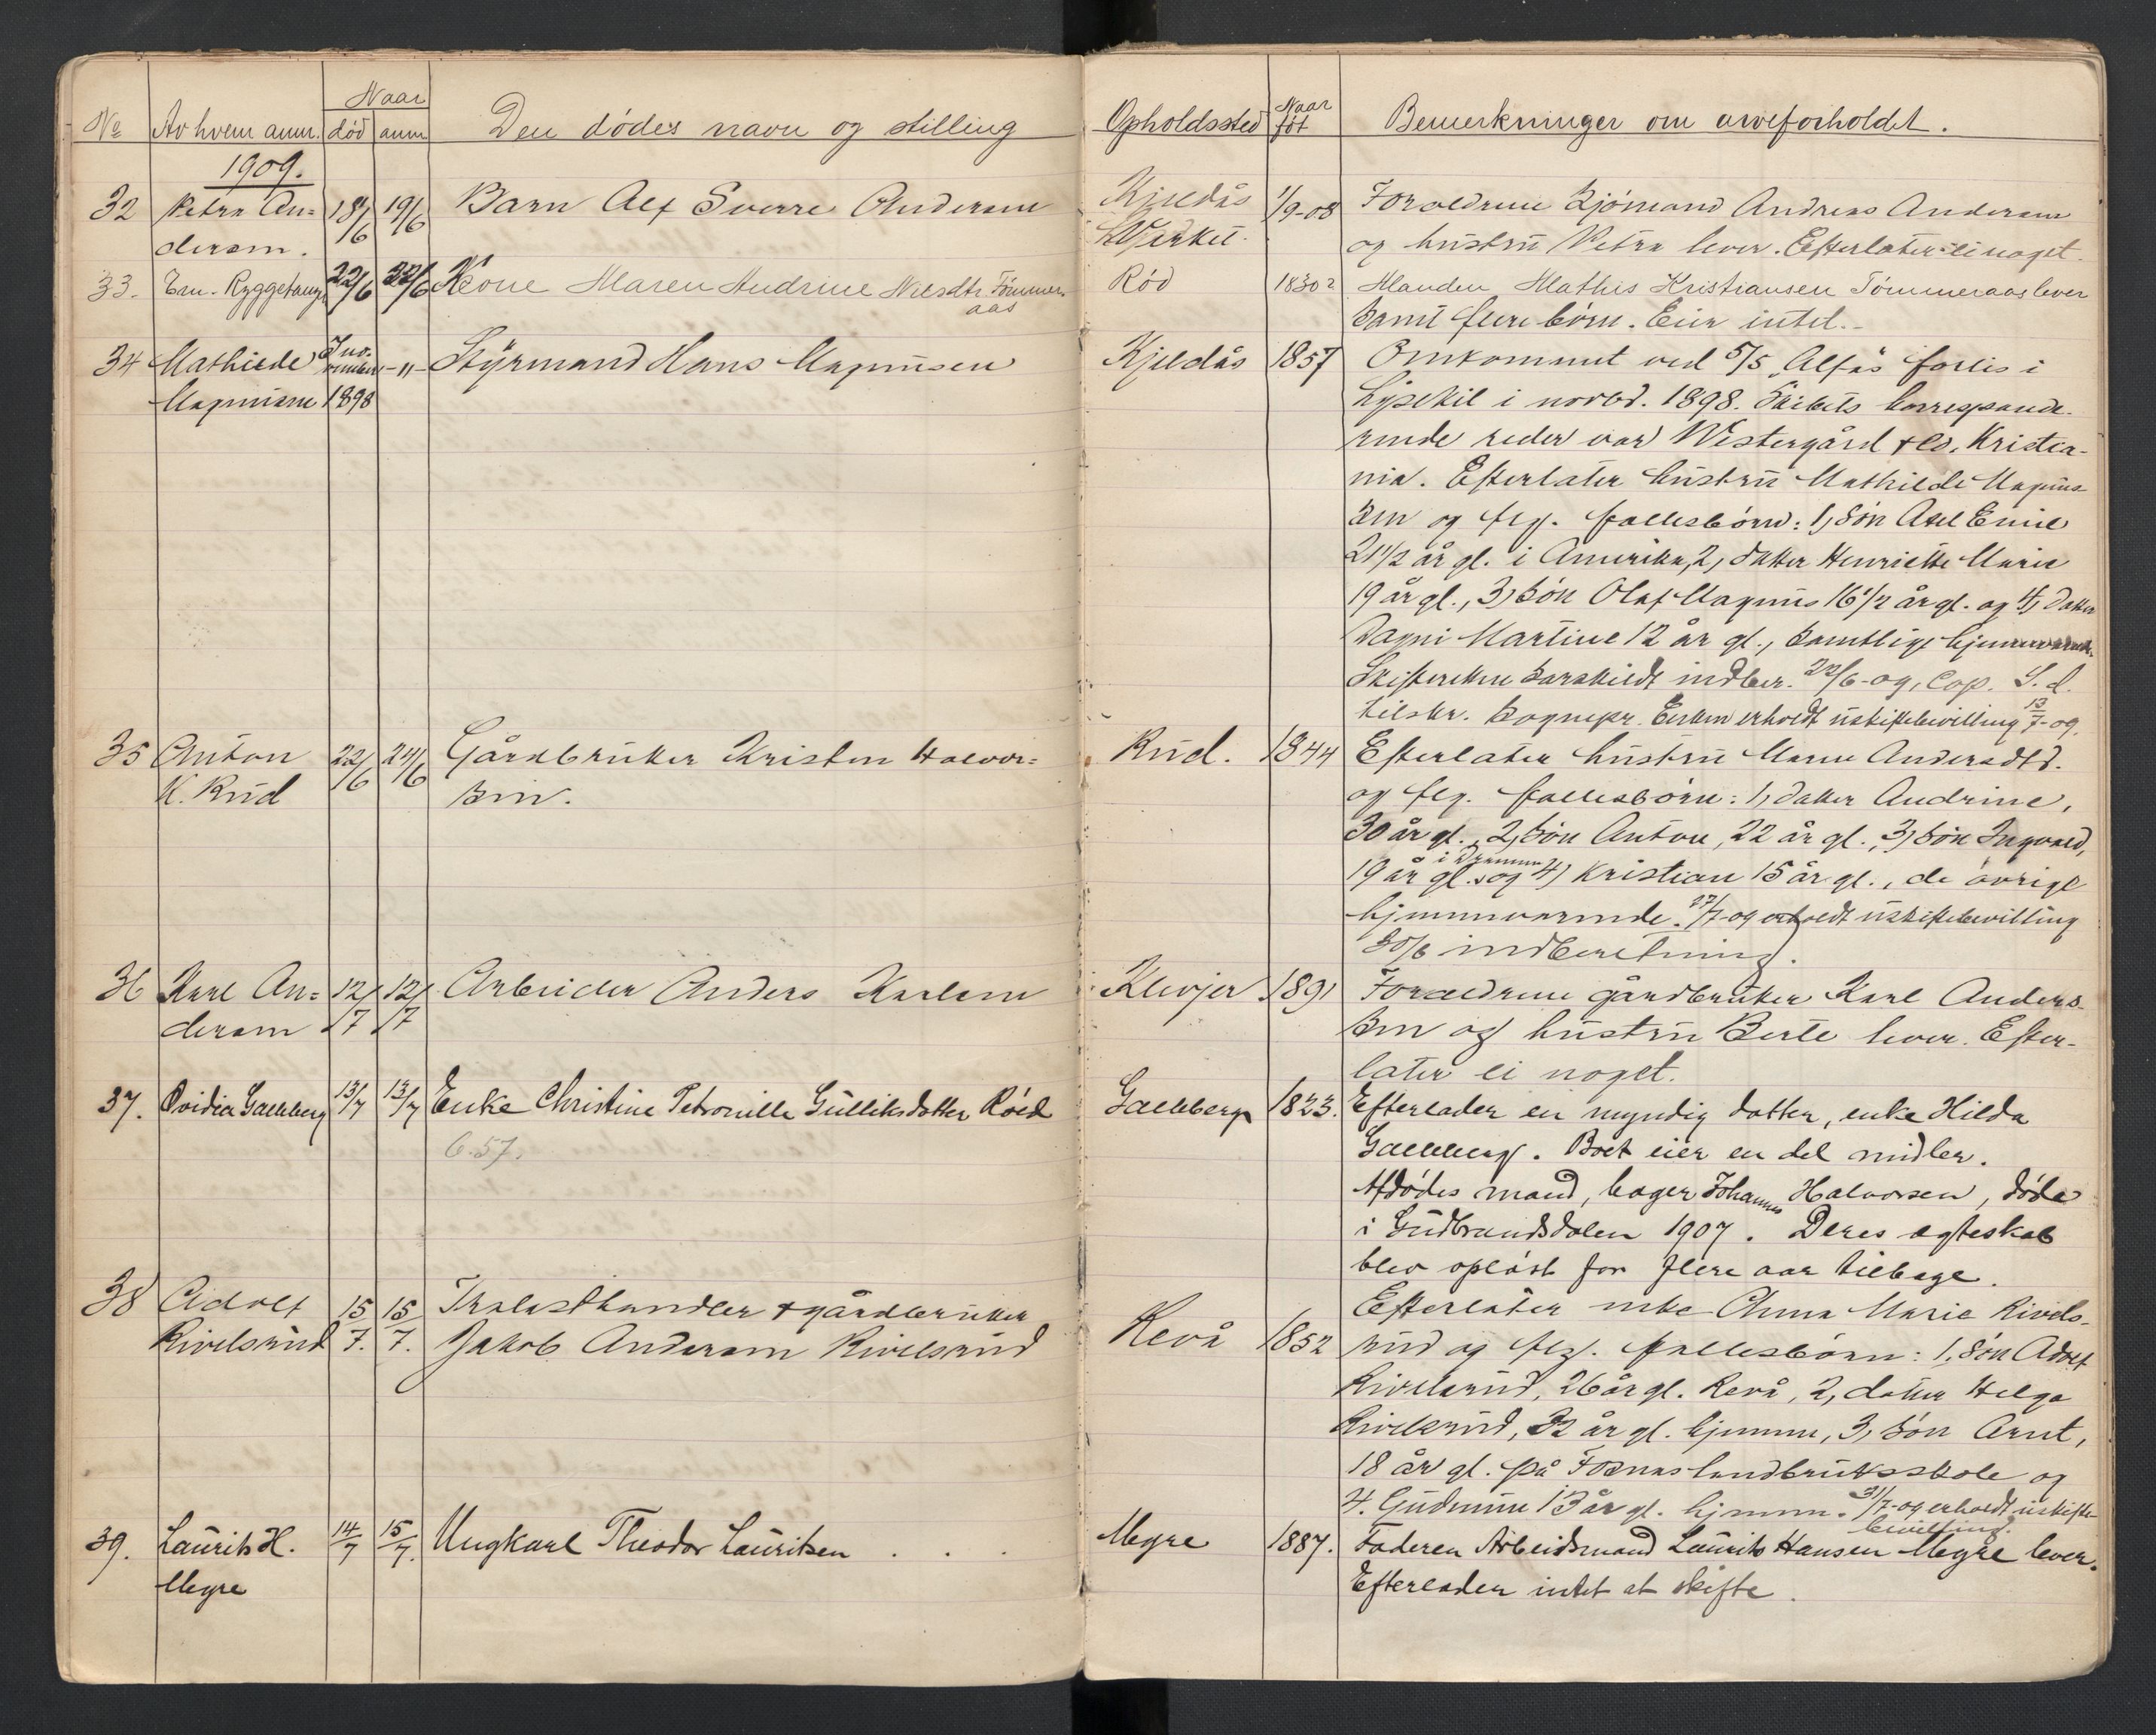 Naar
No Av hvem anm. død anm. Den dødes navn og stilling
1909.
32 Petra An= 18/6 19/6 Barn Alf Sverre Andersen
dersen.
33. Em. Ryggetangen 22/6 22/6 Kone Maren Andrine Nilsdtr. Tömmer-
aas
34 Mathilde I no- -"- Styrmand Hans Magnusen
vember
Magnusen 1898
35 Anton 22/6 24/6 Gårdbruker Kristen Halvor=
K. Rud sen.
36 Karl An= 12/7 12/7 Arbeider Anders Karlsen
dersen
37. Ovidia Gallberg 13/7 13/7 Enke Christine Petronille Gulliksdatter Röed
6.57.
38 Adolf 15/7. 15/7. Trælasthandler + gårdbruker
Rivelsrud Jakob Andersen Rivelsrud
39. Laurits H. 14/7 15/7. Ungkarl Theodor Lauritsen . . .
Megre
Opholdssted Naar føt Bemerkninger om arveforholdet.
Kjeldås 1/9-08 Forældrene Sjömand Andreas Andersen
og hustru Petra lever. Efterlater ei noget.
Röd 1830? Manden Mathis Kristiansen Tömmeraas lever
samt flere börn. Eier intet.-
Kjeldås 1857 Omkommet ved S/S "Alfas" forlis i
Lysekil i novbr. 1898. Skibets korrespande-
rende reder var Westergård & Co, Kristia-
nia. Efterlater hustru Mathilde Magnus-
sen og flg. fællesbörn: 1, Sön Axel Emil
21 1/2 år gl. i Amerika, 2, datter Henriette Marie
19 år gl., 3, sön Olaf Magnus 16 1/2 år gl. og 4, datter
Dagni Martine 12 år gl., samtlige hjemmeværende.
Skifteretten særskildt indber. 22/6-09, Cop. S. d.
tilstr. Sognepr. Enken erholdt uskiftebevilling 13/7-09.
Rud. 1844 Efterlater hustru Maren Andersdtd.
og flg. fællesbörn: 1, datter Andrine,
30 år gl., 2, sön Anton, 22 år gl., 3, sön Ingvald,
i Drammen
19 år gl. og 4, Kristian 15 år gl., de övrige
hjemmeværende. 27/7-09 erholdt uskiftebevilling
30/6 indberetning.
Klevjer 1891 Forældrene gårdbruker Karl Anders-
sen og hustru Berte lever. Efter-
later ei noget.
Gallberg 1823. Efterlader en myndig datter, enke Hilda
Gallberg. Boet eier en del midler.
Afdödes mand, bager Johannes Halvorsen, döde
i Gudbrandsdalen 1907. Deres egteskab
blev oplöst for flere aar tilbage.
Revå 1852 Efterlater enke Anna Marie Rivels-
rud og flg. fællesbörn: 1, Sön Adolf
Rivelsrud, 26 år gl. Revå, 2, datter Helga
Rivelsrud, 22 år gl. hjemme, 3, sön Arnt,
18 år gl. på Fosnæs landbruksskole og
4. Gudmun 13 år gl. hjemm. 31/7-09 erholdt uskifte-
bevilling.
Megre 1887. Faderen Arbeidsmand Laurits Hansen Megre lever.
Efterlader intet at skifte.